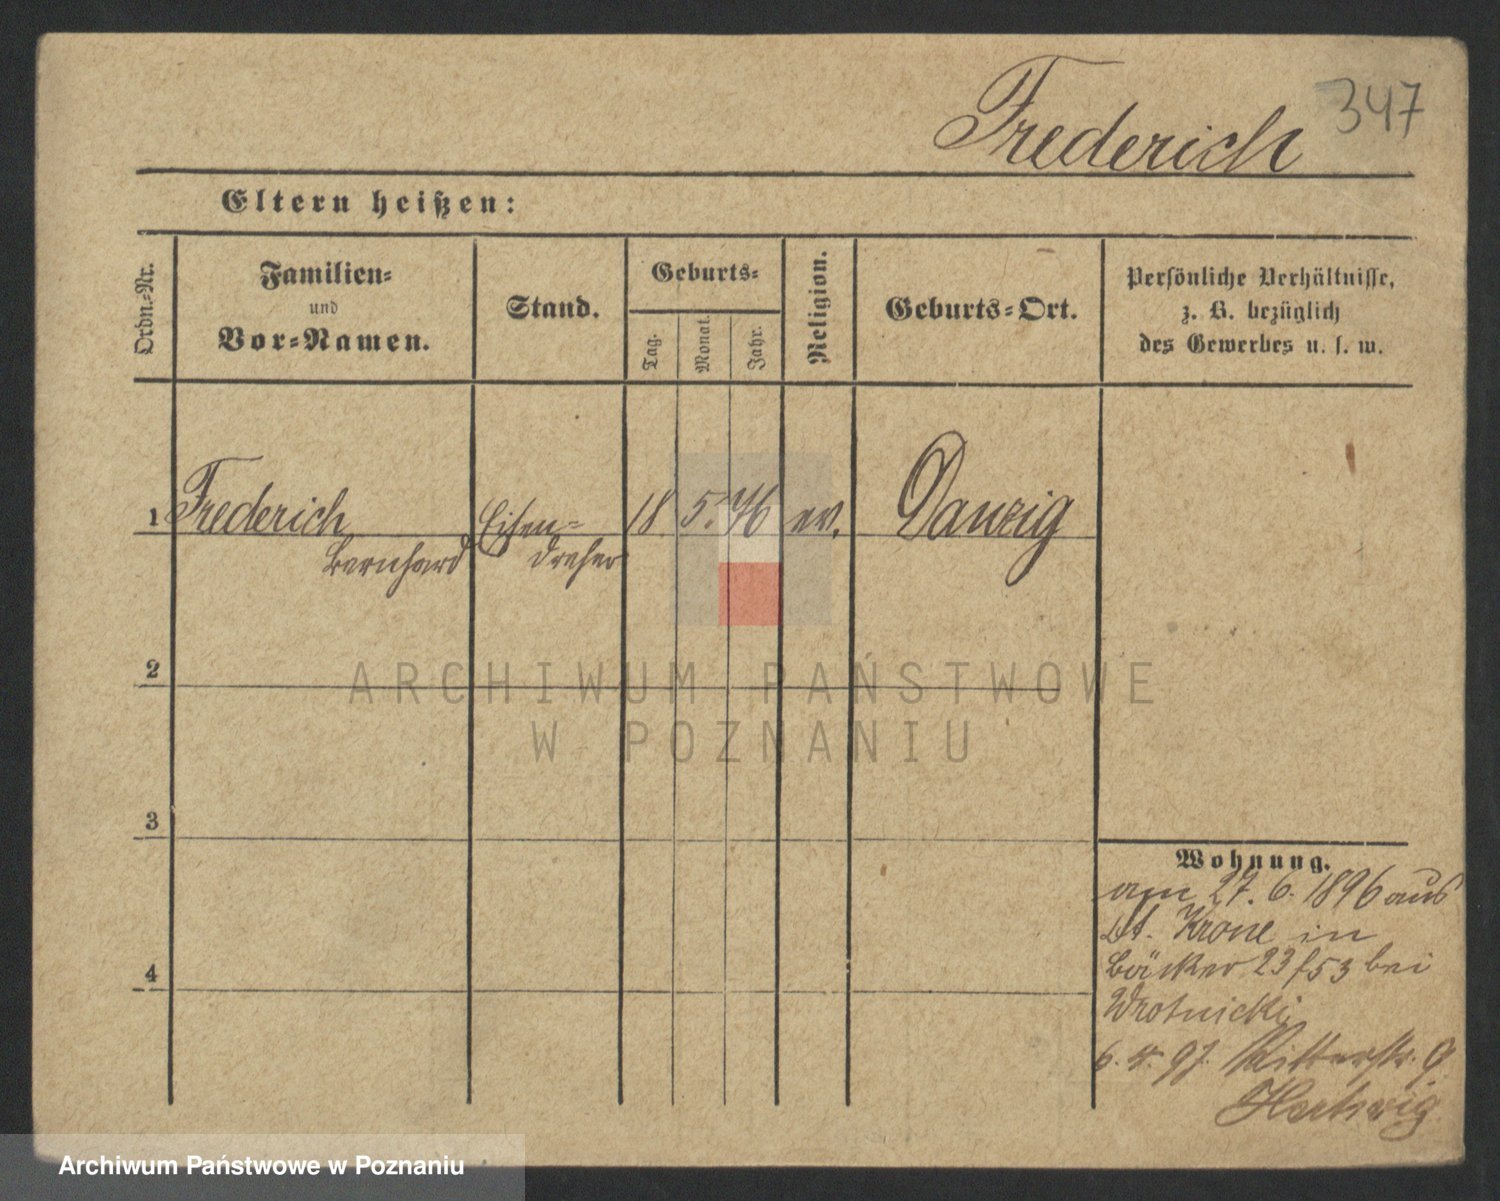 347
Frederich
Eltern heißen:
Ordn.-Nr.
Familien-
und
Vor-Namen.
Stand.
Geburts-
Tag.
Monat.
Jahr.
Religion.
Geburts-Ort.
Persönliche Verhältnisse,
z. B. bezüglich
des Gewerbes u. s. w.
1 Frederich Eisen- 18. 5. 76 ev. Danzig
Bernhard dreher
2
ARCHIWUM PAŃSTWOWE
W POZNANIU
3
4
Wohnung.
am 27. 6. 1896 aus
Dt. Krone in
Bäcker 23/53 bei
Wrotnicki
97. Ritterstr. 9
Archiwum Państwowe w Poznaniu